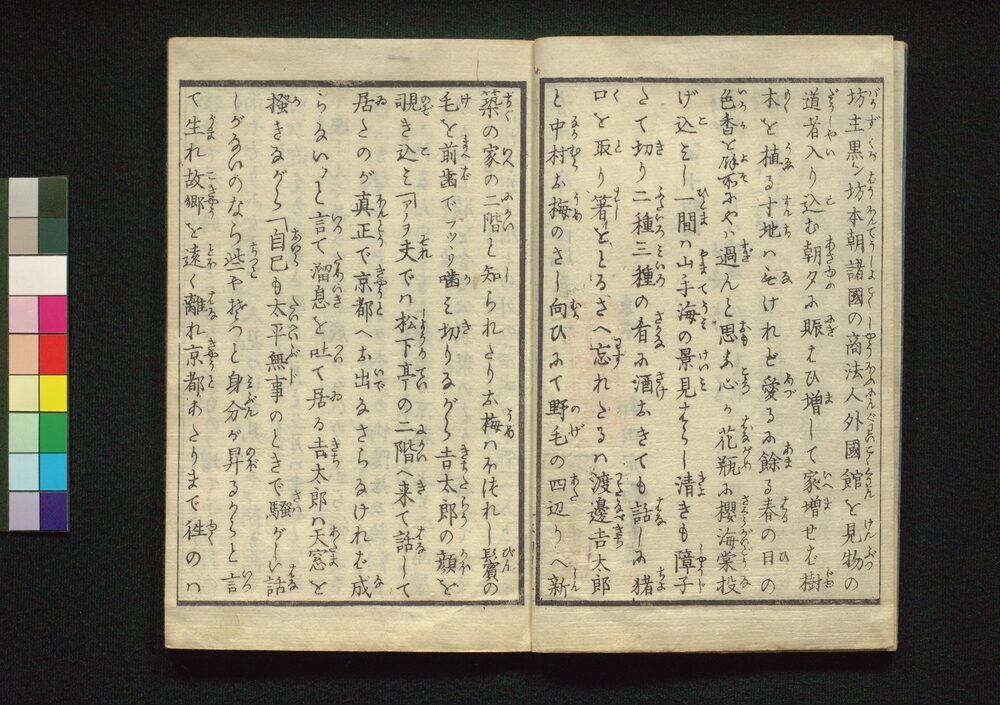 坊主黒ン坊本朝諸國の商法人外國館を見物の
道者入り込む朝夕に賑はひ増して家増せば樹
木を植る寸地はなけれど愛るに餘る春の日の
色香を餘所にやハ過んと思ふ心か花瓶に櫻海棠投
げ込ミし一間ハ山手海の景見はらし清きも障子
たて切り二種三種の肴に酒おきても話しに猪
口を取り箸をとるさへ忘れたるハ渡邊吉太郎
と中村お梅のさし向ひにて野毛の四辺りへ新
築の家の二階と知られたりお梅ハほつれし鬢の
毛を前歯でプツリ噛ミ切りながら吉太郎の顔を
覗き込ミ「アノ夫でハ松下亭の二階へ来て話して
居たのが真正で京都へお出なさらなけれバ成
らないト言て溜息を吐て居る吉太郎ハ天窓を
掻きながら「自己も太平無事のときで騒がしい話
しがないのなら些やそつと身分が昇るからと言
て生れ故郷を遠く離れ京都あたりまで往のハ